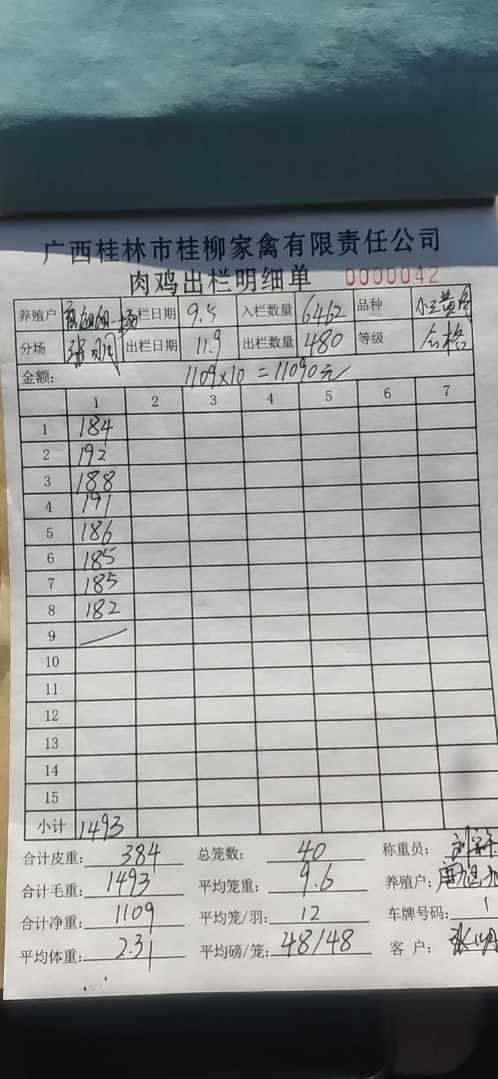 广西桂林市桂柳家禽有限责任公司
肉鸡出栏明细单 0000042
养殖户 栏日期 9.5 入栏数量 6462 品种
分场 出栏日期 11.9 出栏数量 480 等级 合格
金额: 1109×10=11090元
1 2 3 4 5 6 7
1 184
2 192
3 188
4 191
5 186
6 185
7 185
8 182
9
10
11
12
13
14
15
小计 1493
合计皮重: 384 总笼数: 40 称重员:
合计毛重: 1493 平均笼重: 9.6 养殖户:
合计净重: 1109 平均笼/羽: 12 车牌号码: 1
平均体重: 2.31 平均磅/笼: 48/48 客户: